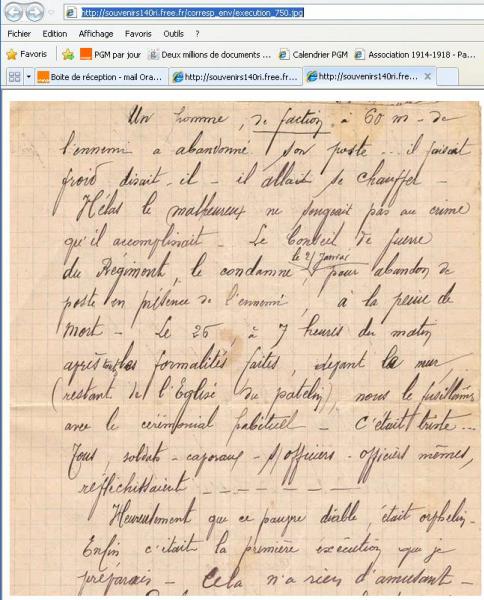 http://souvenirs140ri.free.fr/corresp_env/execution_750.jpg
Fichier Edition Affichage Favoris Outils ?
Favoris PGM par jour Deux millions de documents ... Calendrier PGM Association 1914-1918 - Pa...
Boite de réception - mail Ora... http://souvenirs140ri.free.fr... http://souvenirs140ri.fre...
Un homme, de faction à 60 m - de
l'ennemi a abandonné son poste... il faisait
froid disait - il - il allait se chauffer -
Hélas le malheureux ne songeait pas au crime
qu'il accomplissait - Le Conseil de guerre
le 21 Janvier
du Régiment, le condamne, pour abandon de
poste en présence de l'ennemi, à la peine de
mort - Le 26, à 7 heures du matin
après les formalités faites, devant le mur,
(restant de l'Eglise du patelin), nous le fusillâmes
avec le cérémonial habituel - C'était triste...
Tous, soldats - caporaux - s/officiers - officiers mêmes,
réfléchissaient
Heureusement que ce pauvre diable, était orphelin -
Enfin c'était la première exécution que je
préparais - Cela n'a rien d'amusant -